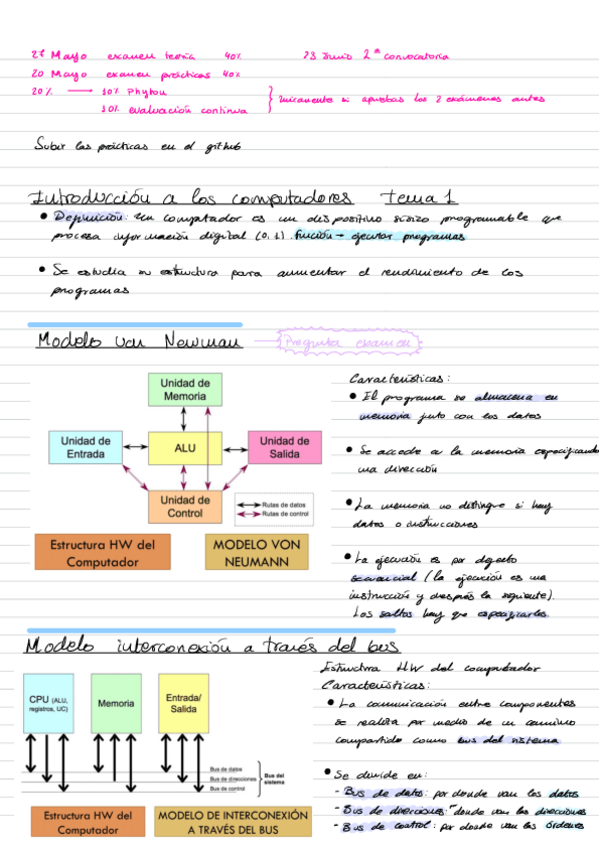 27 Mayo examen teoría 40% 23 Junio 2ª convocatoria
20 Mayo examen prácticas 40%
20% → 10% Phyton
10% evaluación continua
Unicamente si apruebas los 2 exámenes antes
Subir las prácticas en el github
Introducción a los computadores Tema 1
• Definición: Un computador es un dispositivo físico programable que
procesa información digital (0,1). Función → ejecutar programas
• Se estudia su estructura para aumentar el rendimiento de los
programas
Modelo von Newman
Pregunta examen
Unidad de
Memoria
Unidad de
Entrada
ALU
Unidad de
Salida
Unidad de
Control
Rutas de datos
Rutas de control
Estructura HW del
Computador
MODELO VON
NEUMANN
Características:
• El programa se almacena en
memoria junto con los datos
• Se accede a la memoria especificando
una dirección
• La memoria no distingue si hay
datos o instrucciones
• La ejecución es por defecto
secuencial (la ejecución es una
instrucción y después la siguiente).
Los saltos hay que especificarlos
Modelo interconexión a través del bus
CPU (ALU,
registros, UC)
Memoria
Entrada/
Salida
Bus de datos
Bus de direcciones
Bus de control
Bus del
sistema
Estructura HW del
Computador
MODELO DE INTERCONEXIÓN
A TRAVÉS DEL BUS
Estructura HW del computador
Características:
• La comunicación entre componentes
se realiza por medio de un camino
compartido como bus del sistema
• Se divide en:
- Bus de datos: por donde van los datos
- Bus de direcciones: donde van las direcciones
- Bus de control: por donde van las órdenes